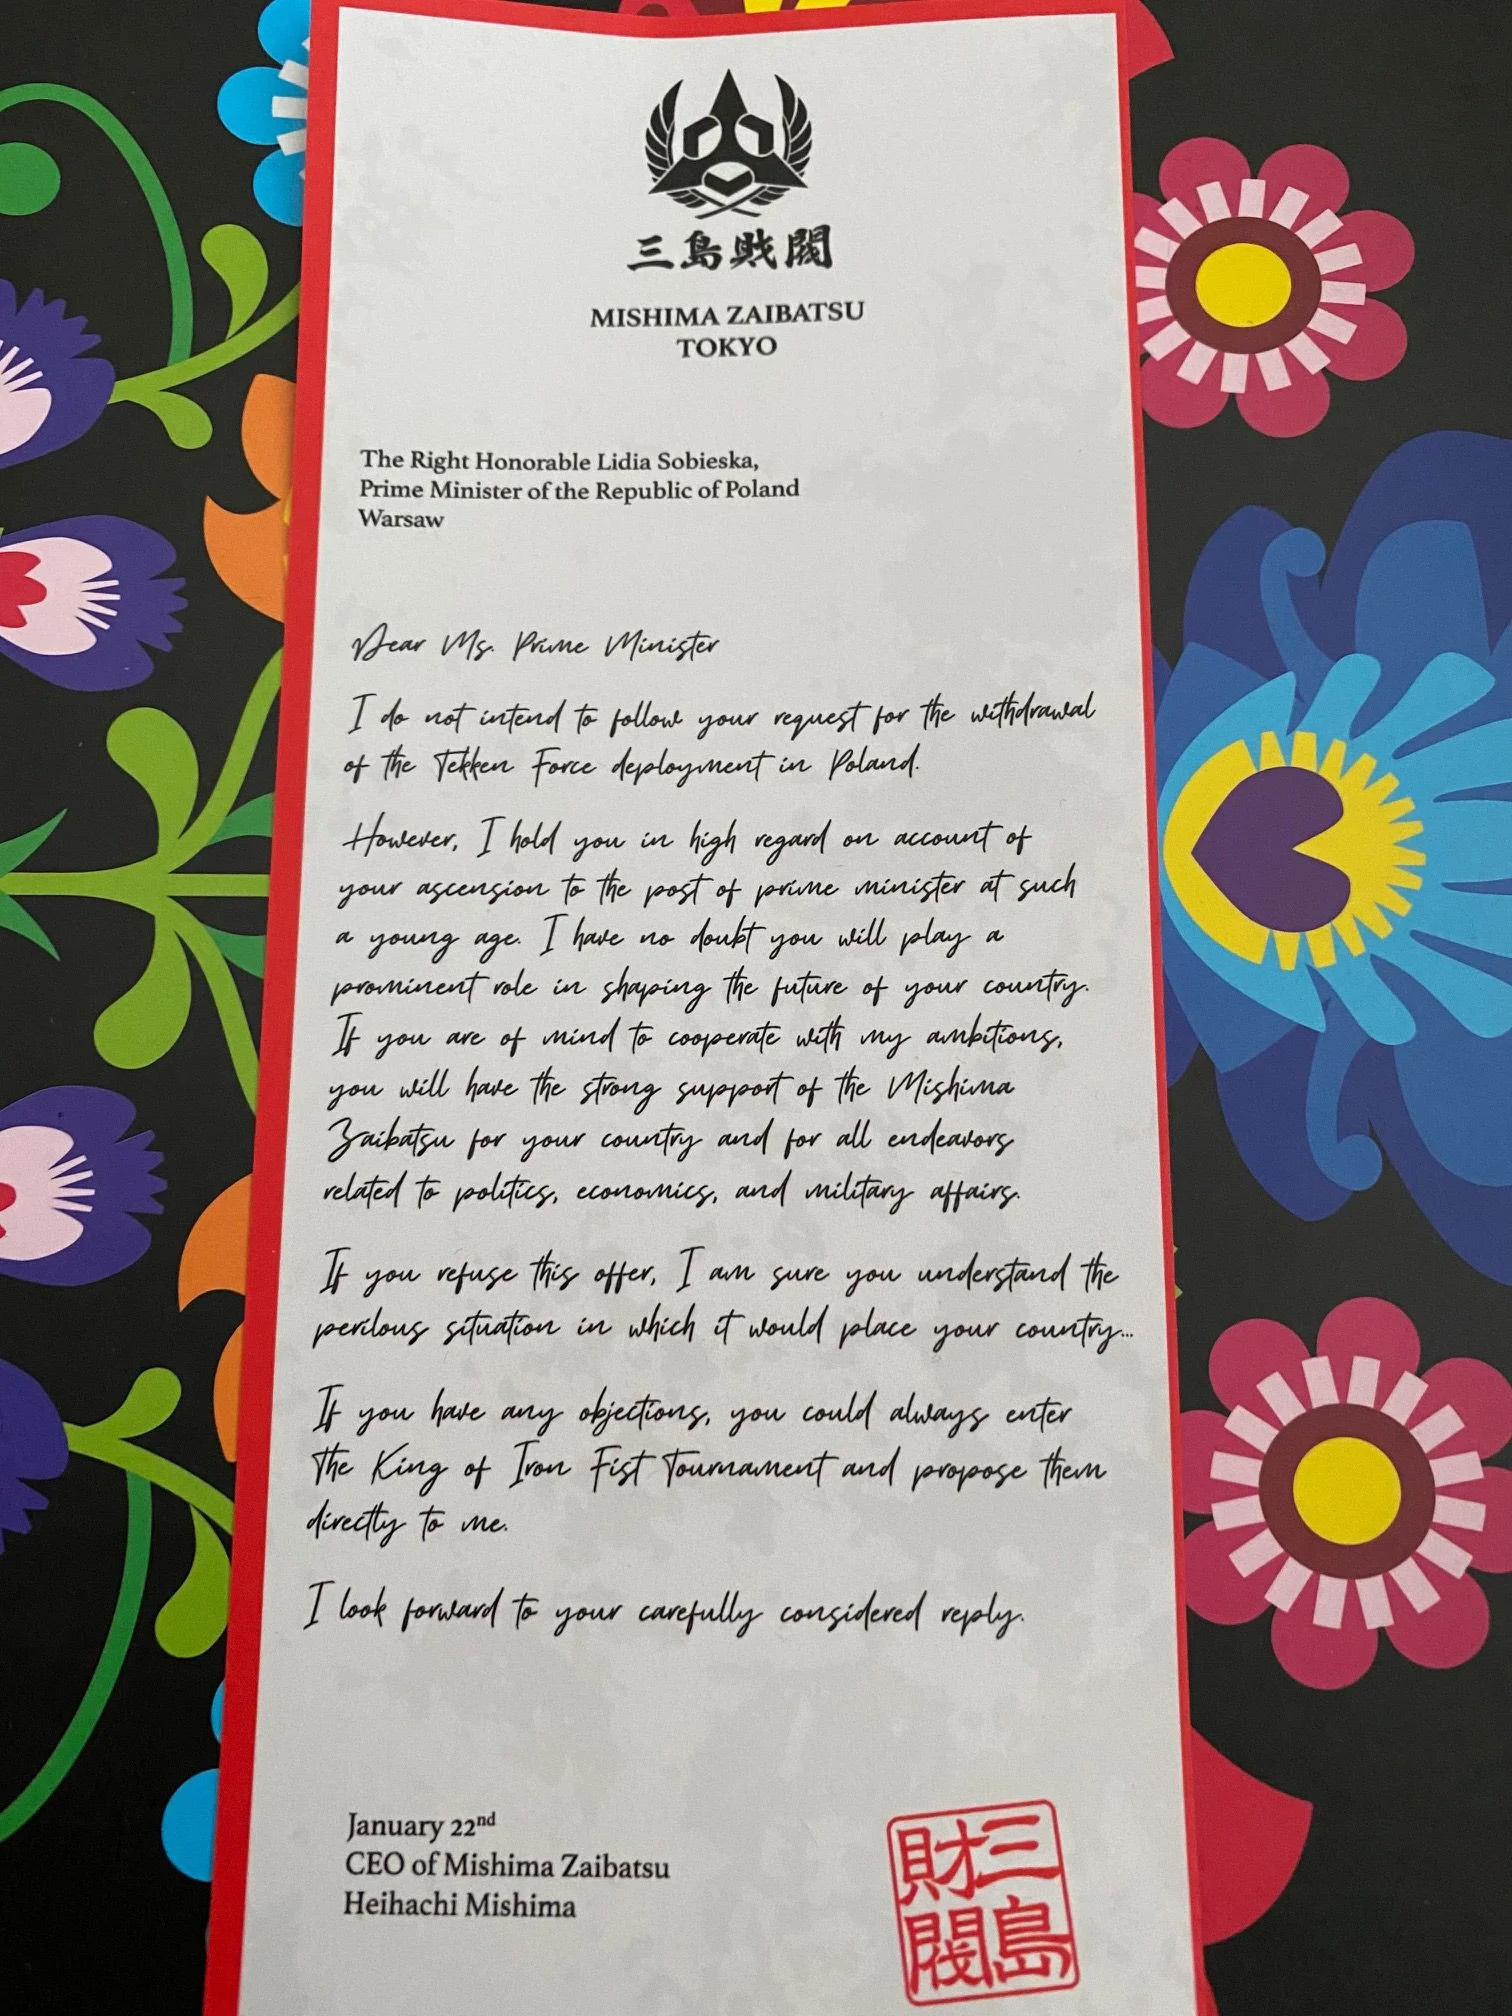 三島財閥
MISHIMA ZAIBATSU
TOKYO
The Right Honorable Lidia Sobieska,
Prime Minister of the Republic of Poland
Warsaw
Dear Ms. Prime Minister
I do not intend to follow your request for the withdrawal
of the Tekken Force deployment in Poland.
However, I hold you in high regard on account of
your ascension to the post of prime minister at such
a young age. I have no doubt you will play a
prominent role in shaping the future of your country.
If you are of mind to cooperate with my ambitions,
you will have the strong support of the Mishima
Zaibatsu for your country and for all endeavors
related to politics, economics, and military affairs.
If you refuse this offer, I am sure you understand the
perilous situation in which it would place your country...
If you have any objections, you could always enter
the King of Iron Fist Tournament and propose them
directly to me.
I look forward to your carefully considered reply.
January 22nd
CEO of Mishima Zaibatsu
Heihachi Mishima
三島
財閥